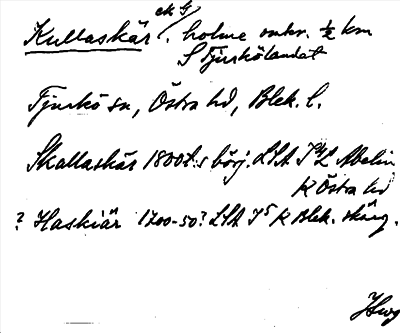 ek G
Kullaskär, holme omkr. ½ km
S Tjurkölandet
Tjurkö sn, Östra hd, Blek. l.
Skallaskär 1800t.s börj. LSA Abelin
K Östra hd
? Haskiär 1700-50? LSA J5 K Blek. skärg.